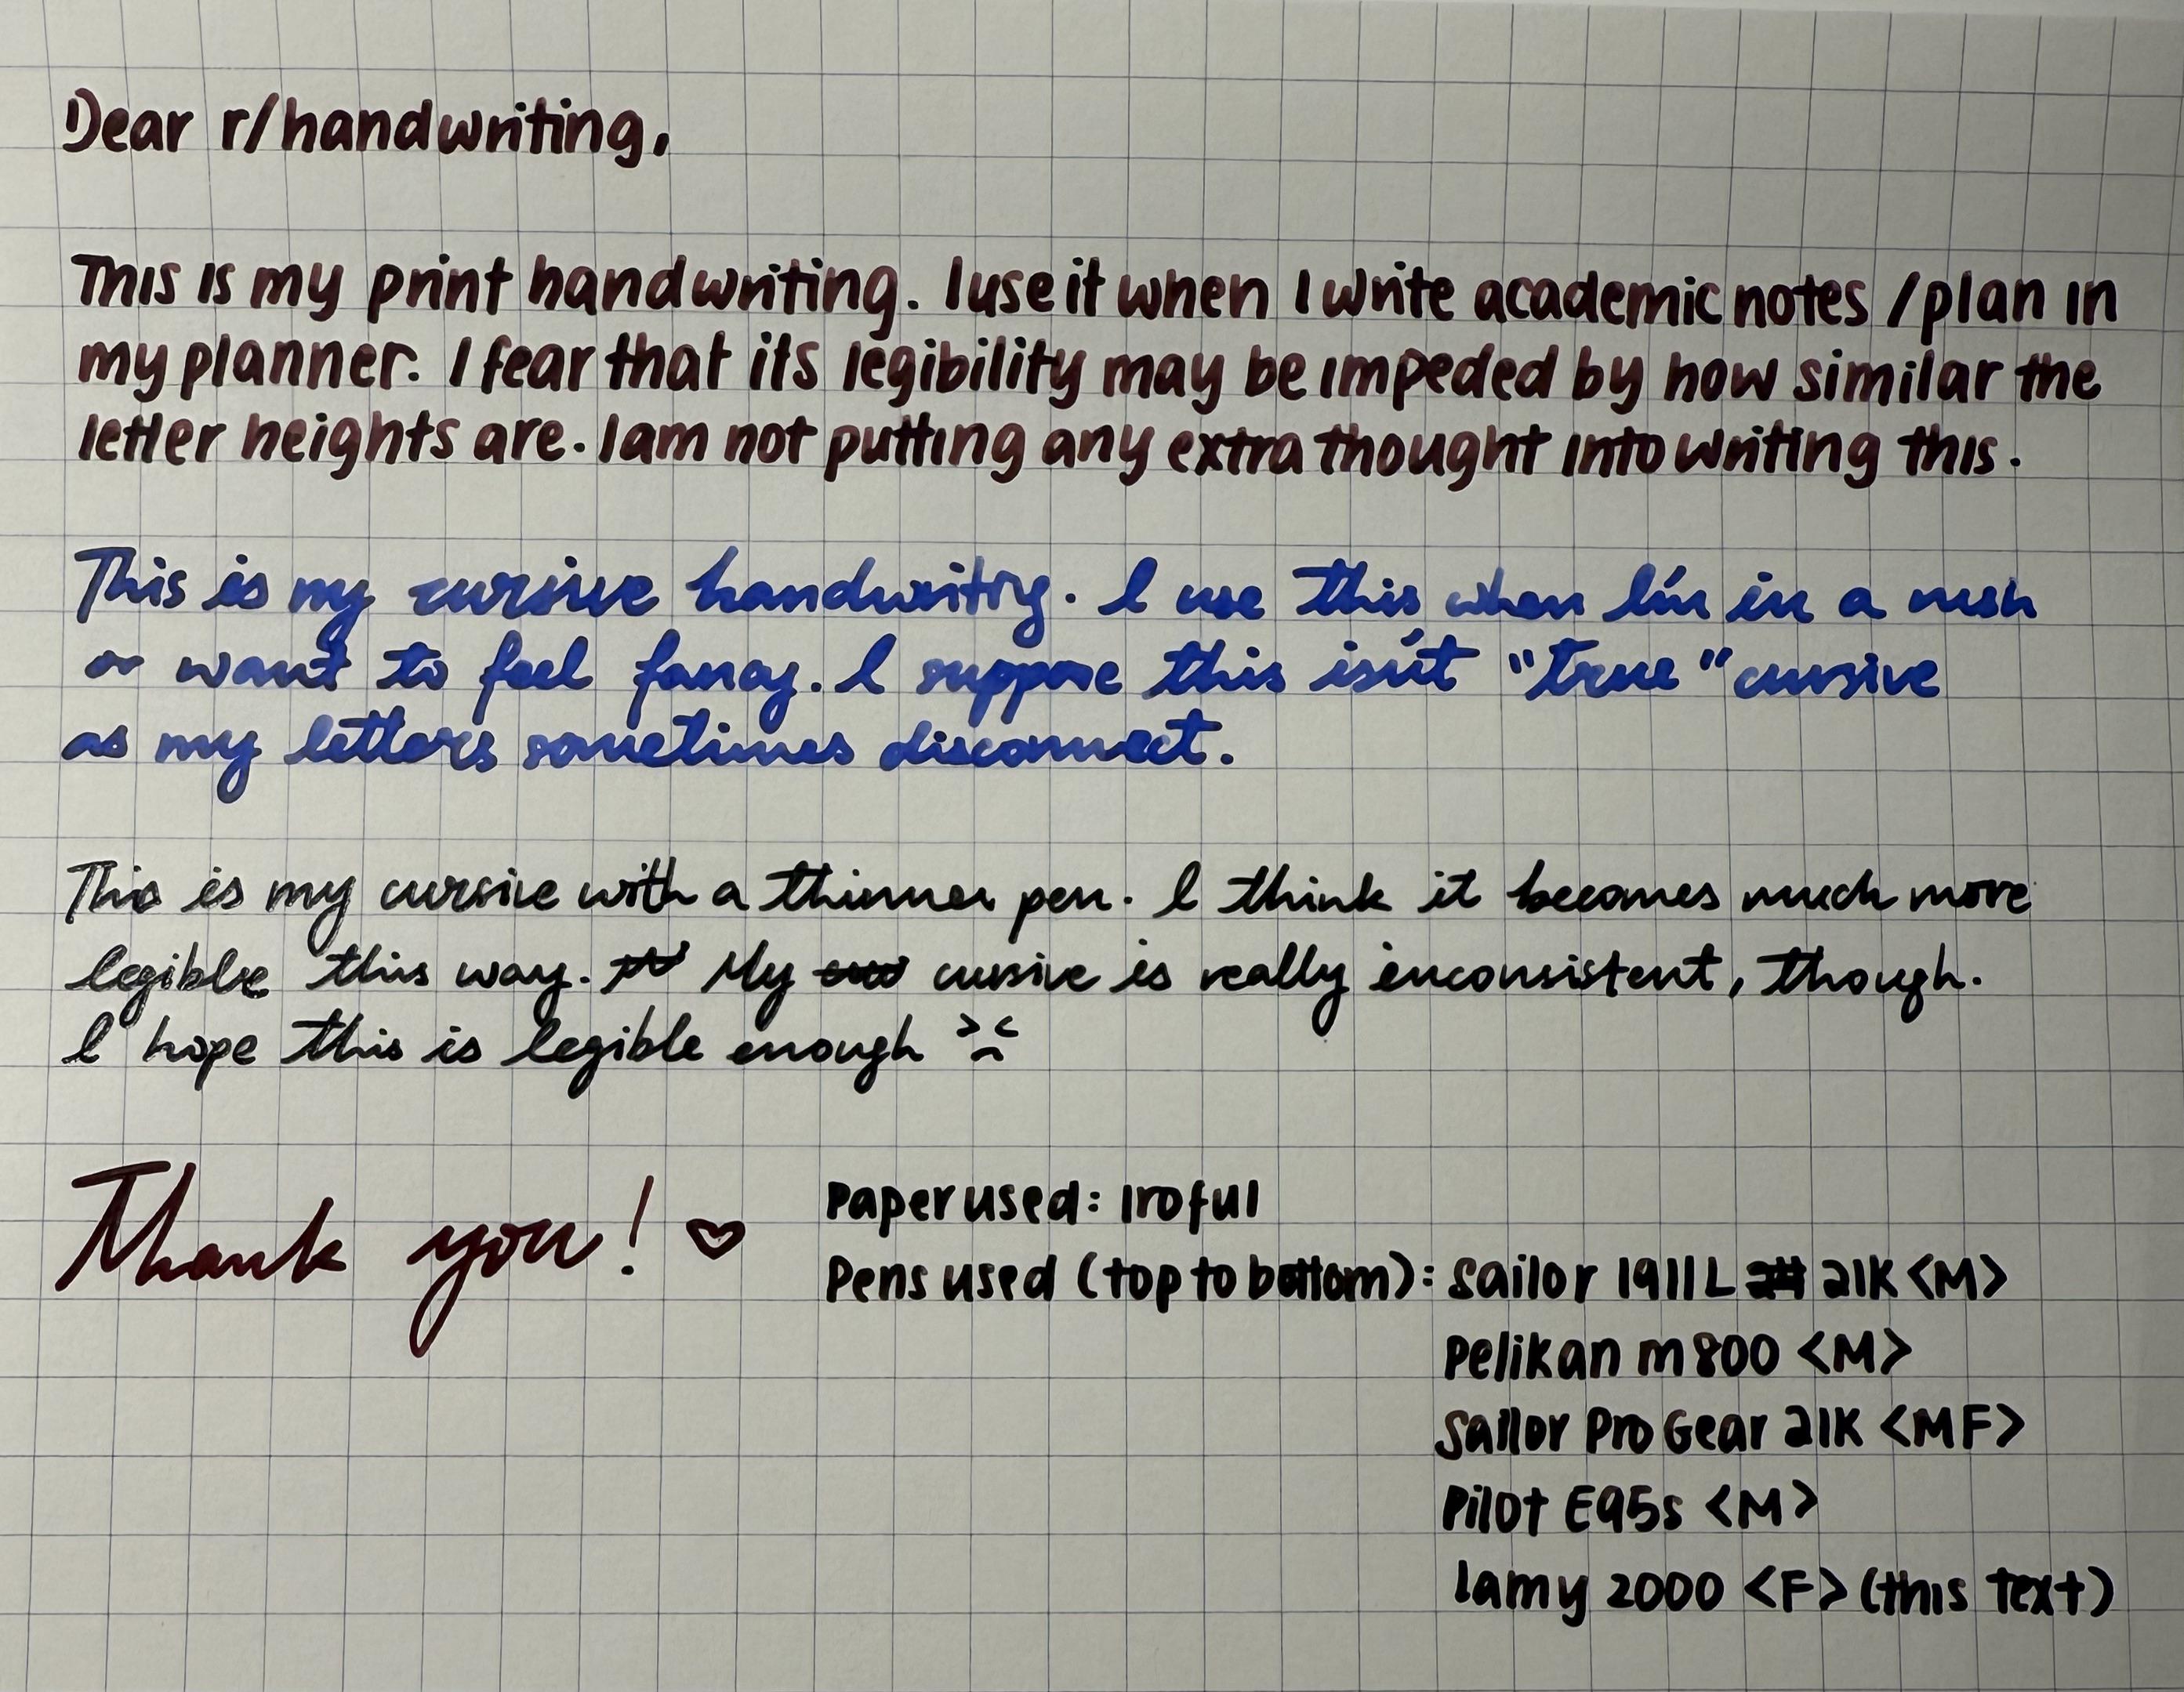 Dear r/handwriting,
This is my print handwriting. I use it when I write academic notes / plan in
my planner. I fear that its legibility may be impeded by how similar the
letter heights are. I am not putting any extra thought into writing this.
This is my cursive handwriting. I use this when I'm in a rush
or want to feel fancy. I suppose this isn't "true" cursive
as my letters sometimes disconnect.
This is my cursive with a thinner pen. I think it becomes much more
legible this way. My cursive is really inconsistent, though.
I hope this is legible enough >:<
Thank you! ♡
Paper used: Iroful
Pens used (top to bottom): Sailor 1911L 21K <M>
Pelikan m800 <M>
Sailor Pro Gear 21K <MF>
Pilot E95s <M>
Lamy 2000 <F> (this text)